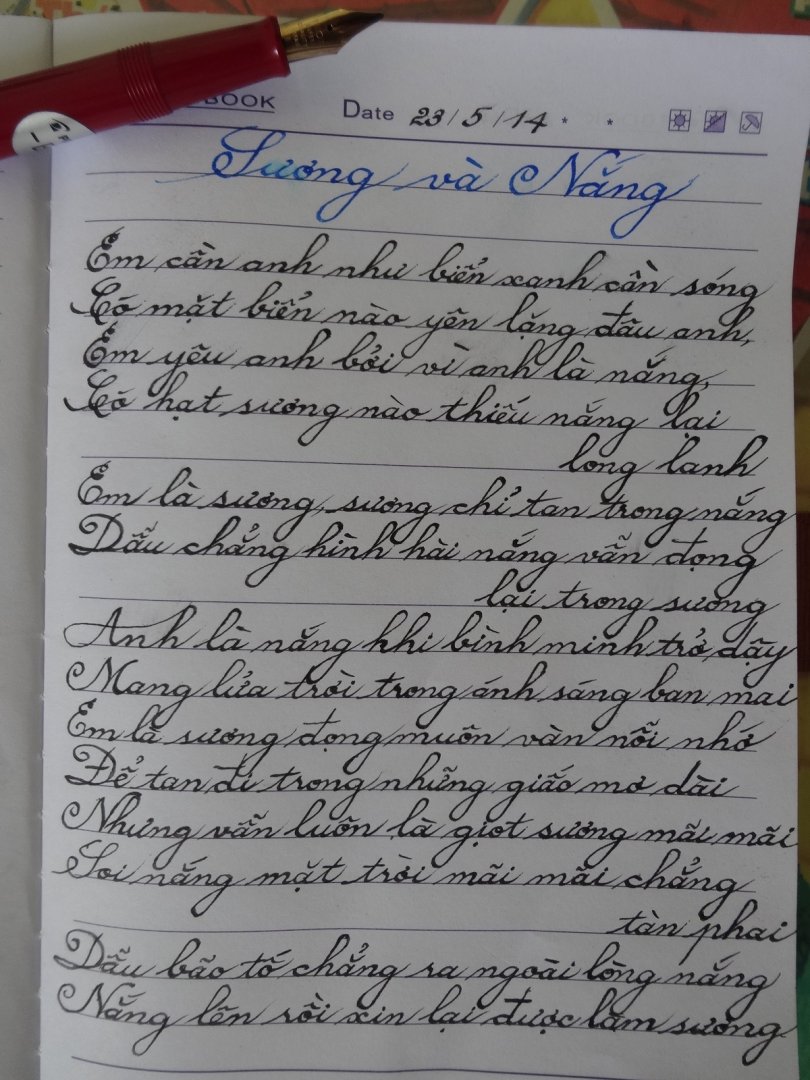 BOOK
Date 23/5/14 * *
Sương và Nắng
Em cần anh như biển xanh cần sóng
Có mặt biển nào yên lặng đâu anh,
Em yêu anh bởi vì anh là nắng,
Có hạt sương nào thiếu nắng lại
long lanh
Em là sương, sương chỉ tan trong nắng
Dẫu chẳng hình hài nắng vẫn đọng
lại trong sương
Anh là nắng khi bình minh trở dậy
Mang lửa trời trong ánh sáng ban mai
Em là sương đọng muôn vàn nỗi nhớ
Để tan đi trong những giấc mơ dài
Nhưng vẫn luôn là giọt sương mãi mãi
Soi nắng mặt trời mãi mãi chẳng
tàn phai
Dẫu bão tố chẳng ra ngoài lòng nắng
Nắng lên rồi xin lại được làm sương